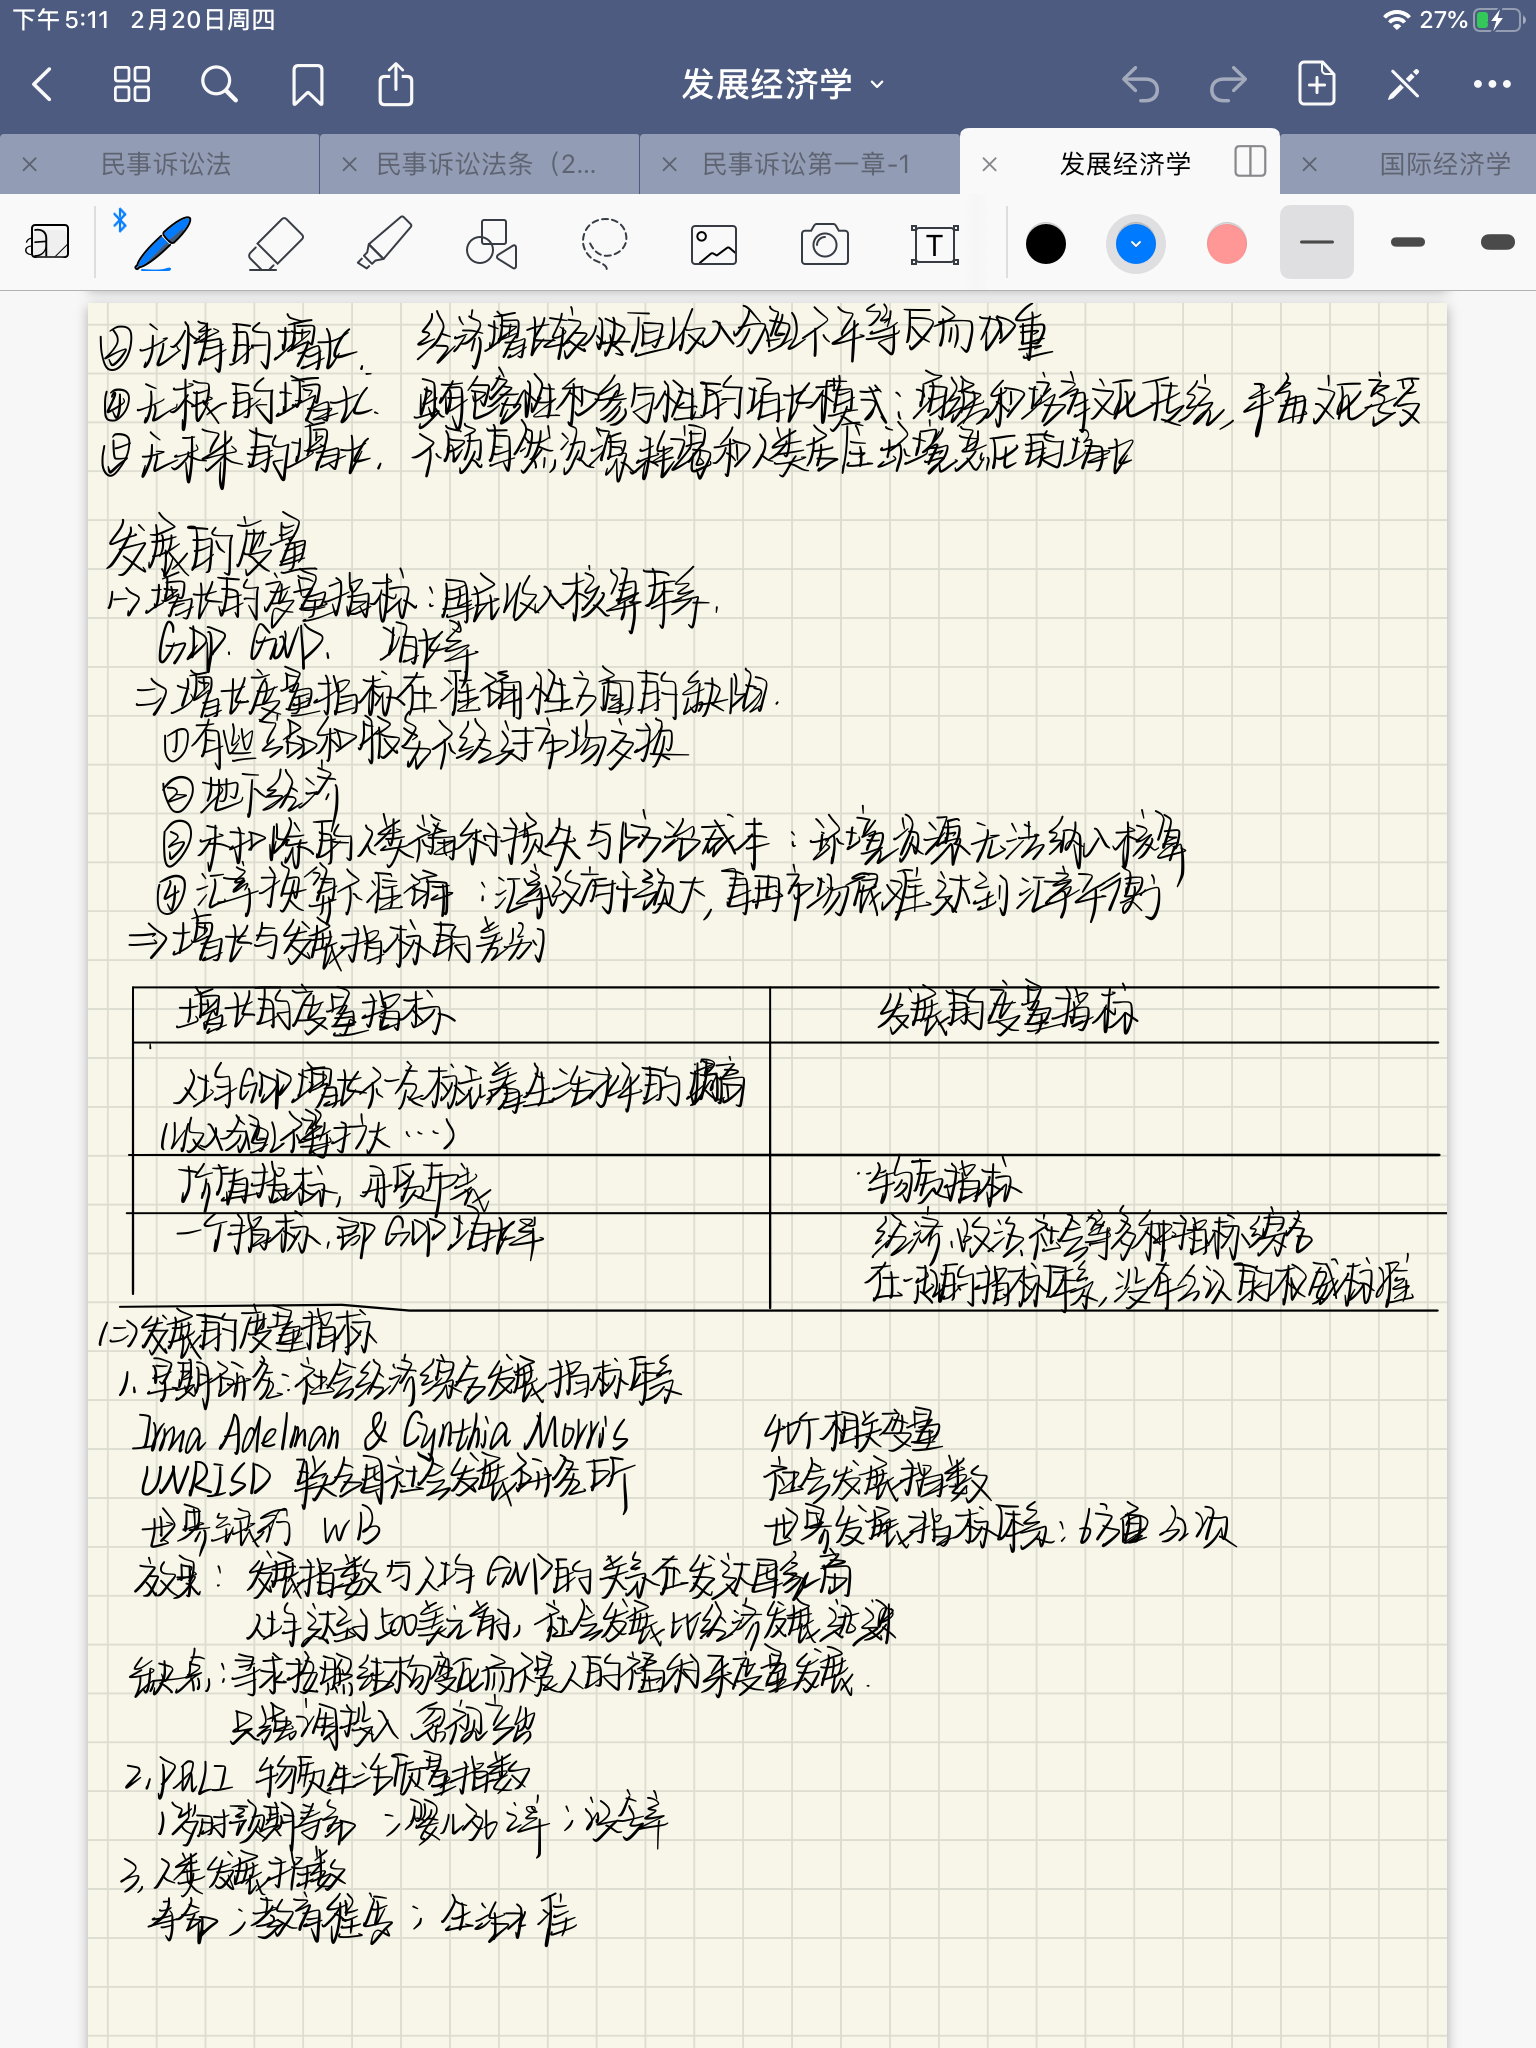 下午5:11 2月20日周四
27%
发展经济学
民事诉讼法
民事诉讼法条（2...
民事诉讼第一章-1
发展经济学
国际经济学
③无情的增长. 经济增长较快但收入分配不平等反而加重
④无根的增长. 具有包容性和参与性的增长模式：
⑤无未来的增长. 不顾自然资源耗竭和人类居住环境恶化的增长
发展的度量
(一)增长的度量指标：国民收入核算体系.
GDP. GNP. 增长率
⇒增长度量指标在准确性方面的缺陷.
①有些产品和服务不经过市场交换
②地下经济
③未扣除的人类福利损失与防治成本：环境资源无法纳入核算
④汇率换算不准确：汇率政府干预大,再市场很难达到汇率平衡
⇒增长与发展指标的差别
增长的度量指标 发展的度量指标
人均GDP增长不一定标志着生活水平的提高
(收入分配不等扩大…)
价值指标, 用货币表 物质指标
一个指标,即GDP增长率 经济、政治、社会等多种指标综合
在一起的指标体系,没有公认的权威标准
(二)发展的度量指标
1. 早期研究：社会经济综合发展指标体系
Irma Adelman & Cynthia Morris 40个相关变量
UNRISD 联合国社会发展研究所 社会发展指数
世界银行 WB 世界发展指标体系：6方面32项
效果：发展指数与人均GNP的关系在发达国家高
人均达到500美元前, 社会发展比经济发展迅速
缺点：寻求按照结构变化而不是人的福利来度量发展.
只强调投入 忽视产出
2. PQLI 物质生活质量指数
1岁时预期寿命；婴儿死亡率；识字率
3. 人类发展指数
寿命；教育程度；生活水准